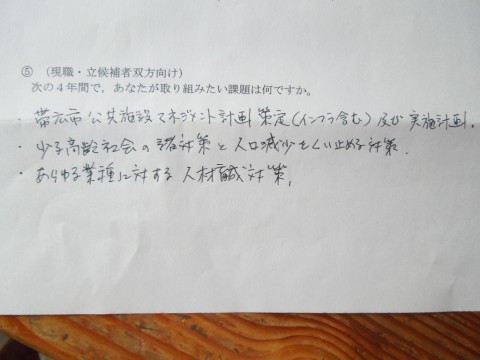 ⑤ (現職・立候補者双方向け)
次の4年間で、あなたが取り組みたい課題は何ですか。
・帯広市公共施設マネジメント計画策定(インフラ含む)及び実施計画。
・少子高齢社会の諸対策と人口減少をくい止める対策.
・あらゆる業種に対する人材育成対策。